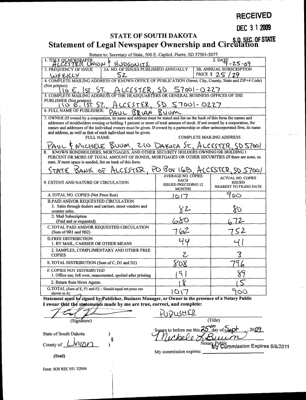 RECEIVED
DEC 31 2009
S.D. SEC. OF STATE
STATE OF SOUTH DAKOTA
Statement of Legal Newspaper Ownership and Circulation
Return to: Secretary of State, 500 E. Capitol, Pierre, SD 57501-5077
1. TITLE OF NEWSPAPER
ALCESTER UNION & HUDSONITE
2. DATE
9-25-09
3. FREQUENCY OF ISSUE
WEEKLY
3A. NO. OF ISSUES PUBLISHED ANNUALLY
52
3B. ANNUAL SUBSCRIPTION
PRICE $ 25/29
4. COMPLETE MAILING ADDRESS OF KNOWN OFFICE OF PUBLICATION (Street, City, County, State and ZIP+4 Code)
(Not printers)
110 E. 1ST ST, ALCESTER, SD 57001-0227
5. COMPLETE MAILING ADDRESS OF THE HEADQUARTERS OR GENERAL BUSINESS OFFICES OF THE
PUBLISHER (Not printers)
110 E. 1ST ST. ALCESTER, SD 57001-0227
6. FULL NAME OF PUBLISHER: PAUL BRIAN BUUM
7. OWNER (If owned by a corporation, its name and address must be stated and also on the back of this form the names and
addresses of stockholders owning or holding 1 percent or more of total amount of stock. If not owned by a corporation, the
names and addresses of the individual owners must be given. If owned by a partnership or other unincorporated firm, its name
and address, as well as that of each individual must be given.
FULL NAME
COMPLETE MAILING ADDRESS
PAUL & MICHELE BUUM, 210 DAKOTA ST, ALCESTER, SD 57001
8. KNOWN BONDHOLDERS, MORTGAGES, AND OTHER SECURITY HOLDERS OWNING OR HOLDING 1
PERCENT OR MORE OF TOTAL AMOUNT OF BONDS, MORTGAGES OR OTHER SECURITIES (If there are none, so
state. If more space is needed, list on back of this form.
STATE BANK OF ALCESTER, PO BOX 168, ALCESTER, SD 57001
9. EXTENT AND NATURE OF CIRCULATION
AVERAGE NO. COPIES
EACH
ISSUED PRECEDING 12
MONTHS
ACTUAL NO. COPIES
ISSUED
NEAREST TO FILING DATE
A. TOTAL NO. COPIES (Net Press Run)
1017
900
B. PAID AND/OR REQUESTED CIRCULATION
1. Sales through dealers and carriers, street vendors and
counter sales
82
80
2. Mail Subscription
(Paid and/or requested)
680
672
C. TOTAL PAID AND/OR REQUESTED CIRCULATION
(Sum of 9B1 and 9B2)
762
752
D. FREE DISTRIBUTION
1. BY MAIL, CARRIER OR OTHER MEANS
44
41
2. SAMPLES, COMPLIMENTARY AND OTHER FREE
COPIES
2
3
E. TOTAL DISTRIBUTION (Sum of C, D1 and D2)
808
796
F. COPIES NOT DISTRIBUTED
1. Office use, left over, unaccounted, spoiled after printing
191
89
2. Return from News Agents
18
15
G. TOTAL (Sum of E, F1 and F2 - Should equal net press run
shown in A)
1017
900
Statement must be signed by Publisher, Business Manager, or Owner in the presence of a Notary Public
I swear that the statements made by me are true, correct, and complete:
PUBLISHER
(Signature)
(Title)
State of South Dakota )
County of Union )
Sworn to before me this 25th day of Sept, 2009
Michele L Buum
Notary Public
My Commission Expires 5/6/2011
(Seal)
My commission expires:
Form: SOS REC 051 7/2004